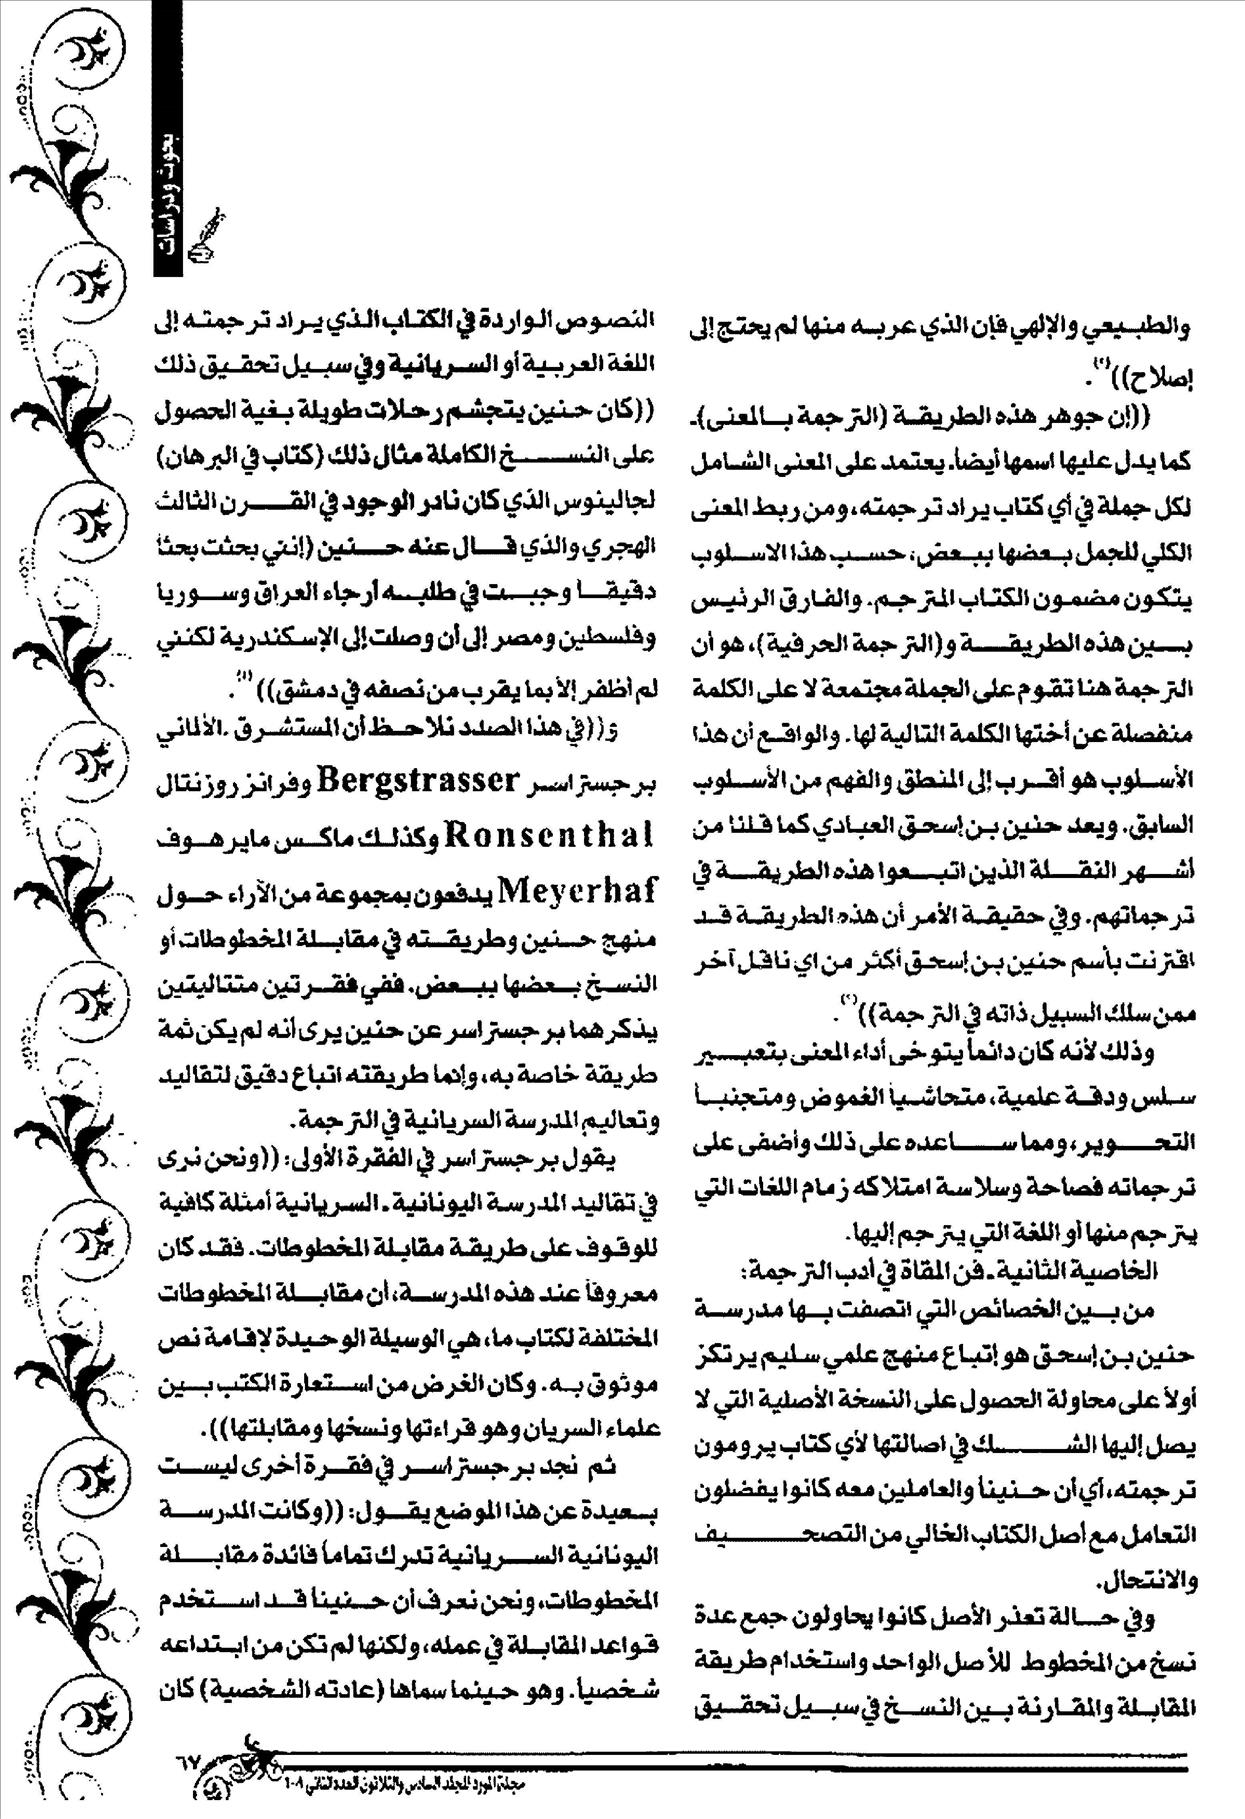 بحوث ودراسات
والطبيعي والإلهي فإن الذي عربه منها لم يحتج إلى
إصلاح)) .
((إن جوهر هذه الطريقة (الترجمة بالمعنى).
كما يدل عليها اسمها أيضاً. يعتمد على المعنى الشامل
لكل جملة في أي كتاب يراد ترجمته، ومن ربط المعنى
الكلي للجمل بعضها ببعض، حسب هذا الاسلوب
يتكون مضمون الكتاب المترجم. والفارق الرئيس
بين هذه الطريقة و(الترجمة الحرفية)، هو أن
الترجمة هنا تقوم على الجملة مجتمعة لا على الكلمة
منفصلة عن أختها الكلمة التالية لها. والواقع أن هذا
الأسلوب هو أقرب إلى المنطق والفهم من الأسلوب
السابق. ويعد حنين بن إسحق العبادي كما قلنا من
أشهر النقلة الذين اتبعوا هذه الطريقة في
ترجماتهم. وفي حقيقة الأمر أن هذه الطريقة قد
اقترنت بأسم حنين بن إسحق أكثر من اي ناقل آخر
ممن سلك السبيل ذاته في الترجمة)) .
وذلك لأنه كان دائماً يتوخى أداء المعنى بتعبير
سلس ودقة علمية، متحاشياً الغموض ومتجنباً
التحوير، ومما ساعده على ذلك وأضفى على
ترجماته فصاحة وسلاسة امتلاكه زمام اللغات التي
يترجم منها أو اللغة التي يترجم إليها.
الخاصية الثانية. فن المقاة في أدب الترجمة:
من بين الخصائص التي اتصفت بها مدرسة
حنين بن إسحق هو إتباع منهج علمي سليم يرتكز
أولاً على محاولة الحصول على النسخة الأصلية التي لا
يصل إليها الشك في اصالتها لأي كتاب يرومون
ترجمته، أي أن حنيناً والعاملين معه كانوا يفضلون
التعامل مع أصل الكتاب الخالي من التصحيف
والانتحال.
وفي حالة تعذر الأصل كانوا يحاولون جمع عدة
نسخ من المخطوط للأصل الواحد واستخدام طريقة
المقابلة والمقارنة بين النسخ في سبيل تحقيق
النصوص الواردة في الكتاب الذي يراد ترجمته إلى
اللغة العربية أو السريانية وفي سبيل تحقيق ذلك
((كان حنين يتجشم رحلات طويلة بغية الحصول
على النسخ الكاملة مثال ذلك (كتاب في البرهان)
لجالينوس الذي كان نادر الوجود في القرن الثالث
الهجري والذي قال عنه حنين (إنني بحثت بحثاً
دقيقا وجبت في طلبه أرجاء العراق وسوريا
وفلسطين ومصر إلى أن وصلت إلى الإسكندرية لكنني
لم أظفر إلا بما يقرب من نصفه في دمشق)) .
و((في هذا الصدد نلاحظ أن المستشرق .الألماني
برجستراسر Bergstrasser وفرانز روزنتال
Ronsenthal وكذلك ماكس مايرهوف
Meyerhaf يدفعون بمجموعة من الآراء حول
منهج حنين وطريقته في مقابلة المخطوطات أو
النسخ بعضها ببعض. ففي فقرتين متتاليتين
يذكرهما برجستراسر عن حنين يرى أنه لم يكن ثمة
طريقة خاصة به، وإنما طريقته اتباع دقيق لتقاليد
وتعاليم المدرسة السريانية في الترجمة.
يقول برجستراسر في الفقرة الأولى: ((ونحن نرى
في تقاليد المدرسة اليونانية. السريانية أمثلة كافية
للوقوف على طريقة مقابلة المخطوطات. فقد كان
معروفاً عند هذه المدرسة، أن مقابلة المخطوطات
المختلفة لكتاب ما، هي الوسيلة الوحيدة لإقامة نص
موثوق به. وكان الغرض من استعارة الكتب بين
علماء السريان وهو قراءتها ونسخها ومقابلتها)).
ثم نجد برجستراسر في فقرة أخرى ليست
بعيدة عن هذا الموضع يقول: ((وكانت المدرسة
اليونانية السريانية تدرك تماماً فائدة مقابلة
المخطوطات، ونحن نعرف أن حنيناً قد استخدم
قواعد المقابلة في عمله، ولكنها لم تكن من ابتداعه
شخصياً. وهو حينما سماها (عادته الشخصية) كان
٦٧
مجلة المورد المجلد السادس والثلاثون العدد الثاني